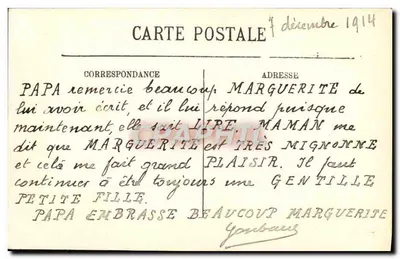 7 décembre 1914
CARTE POSTALE
CORRESPONDANCE ADRESSE
PAPA remercie beaucoup MARGUERITE de
lui avoir écrit et il lui répond puisque
maintenant, elle sait LIRE. MAMAN me
dit que MARGUERITE est TRES MIGNONNE
et celà me fait grand PLAISIR. Il faut
continuer à être toujours une GENTILLE
PETITE FILLE.
PAPA EMBRASSE BEAUCOUP MARGUERITE